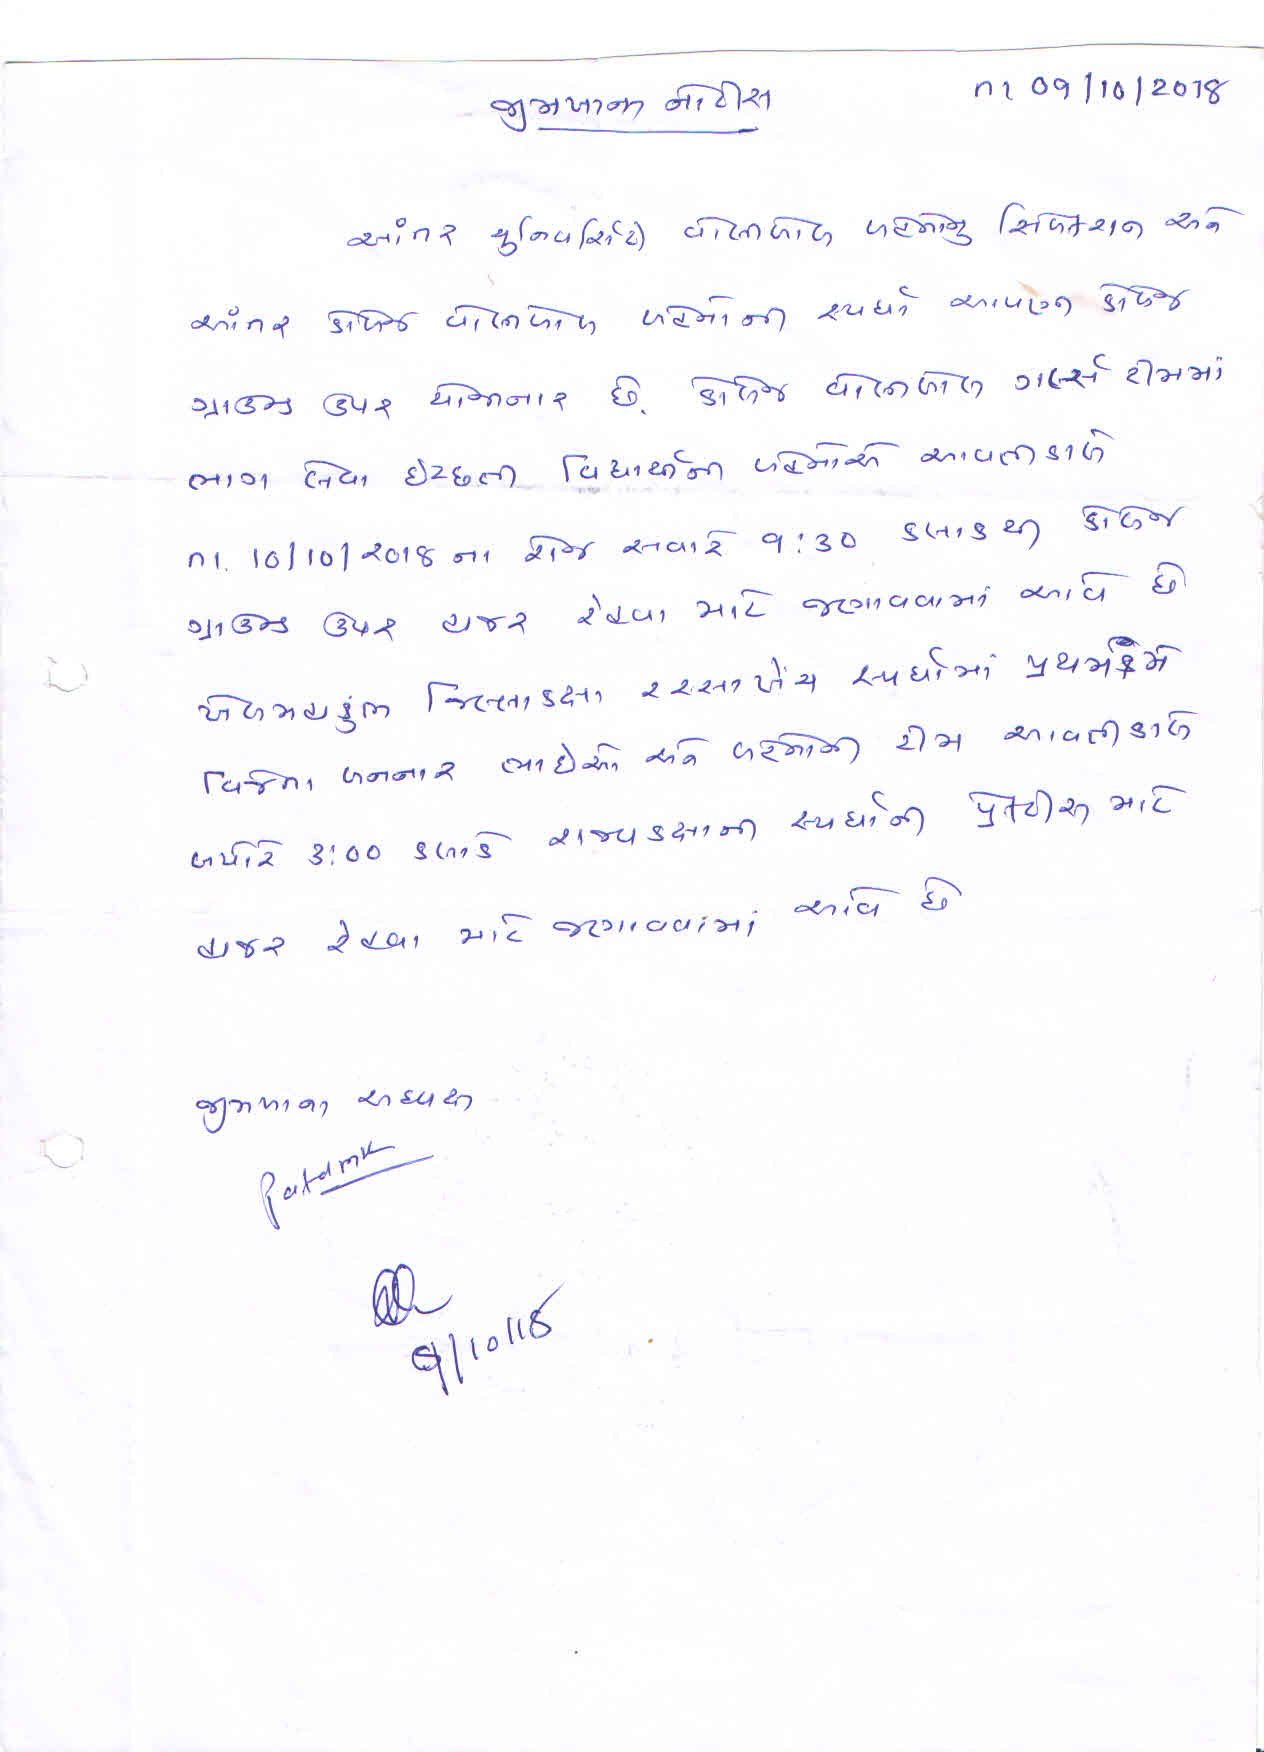 જીમખાના નોટીસ
તા 09/10/2018
આંતર યુનિવર્સિટી વોલીબોલ બહેનોનુ સિલેકશન અને
આંતર કોલેજ વોલીબોલ બહેનોની સ્પર્ધા આપણા કોલેજ
ગ્રાઉન્ડ ઉપર યોજાનાર છે. કોલેજ વોલીબોલ ગર્લ્સ ટીમમાં
ભાગ લેવા ઇચ્છતી વિદ્યાર્થીની બહેનોએ આવતીકાલે
તા. 10/10/2018 ના રોજ સવારે ૧:30 કલાકથી કોલેજ
ગ્રાઉન્ડ ઉપર હાજર રેહવા માટે જણાવવામાં આવે છે
ખેલમહાકુંભ જિલ્લાકક્ષા રસ્સાખેંચ સ્પર્ધામાં પ્રથમક્રમે
વિજેતા બનનાર ભાઇઓ અને બહેનોની ટીમ આવતીકાલે
બપોરે 3:00 કલાકે રાજ્યકક્ષાની સ્પર્ધાની પ્રેક્ટીસ માટે
હાજર રેહવા માટે જણાવવામાં આવે છે
જીમખાના અધ્યક્ષ
9/10/18